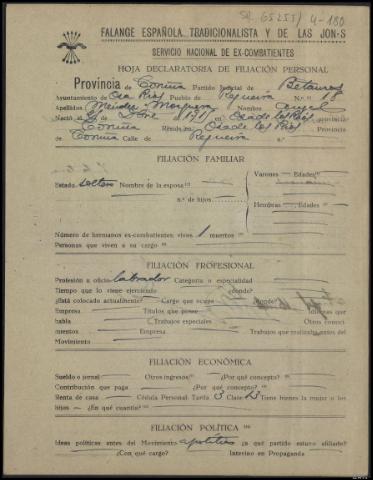 FALANGE ESPAÑOLA TRADICIONALISTA Y DE LAS JON-S
SERVICIO NACIONAL DE EX-COMBATIENTES
HOJA DECLARATORIA DE FILIACIÓN PERSONAL
Provincia de Coruña Partido Judicial de Betanzos
Ayuntamiento de Oza Rios Pueblo de Regueira N.º 18
Apellidos Méndez Mosquera Nombre Angel
Nació el de de 191 en Oza de los Rios provincia
de Coruña Reside en Oza de los Rios Provincia
de Coruña Calle de Regueira n.º
FILIACIÓN FAMILIAR
Estado soltero Nombre de la esposa
Varones Edades
n.º de hijos
Hembras Edades
Número de hermanos ex-combatientes: vivos 1 muertos
Personas que viven a su cargo
FILIACIÓN PROFESIONAL
Profesión u oficio labrador Categoría o especialidad
Tiempo que lo viene ejerciendo
¿Está colocado actualmente? Cargo que ocupa ¿Donde?
Empresa Títulos que posee Idiomas que
habla Trabajos especiales Otros conoci
mientos Empresa Trabajos que realizaba antes del
Movimiento
FILIACIÓN ECONÓMICA
Sueldo o jornal Otros ingresos ¿Por qué concepto?
Contribución que paga ¿Por qué concepto?
Renta de casa Cédula Personal Tarifa 3 Clase 13 Tiene bienes la mujer o los
hijos ¿En qué cuantía?
FILIACIÓN POLÍTICA
Ideas políticas antes del Movimiento apolítico ¿a qué partido estuvo afiliado?
¿Con qué cargo? Intervino en Propaganda